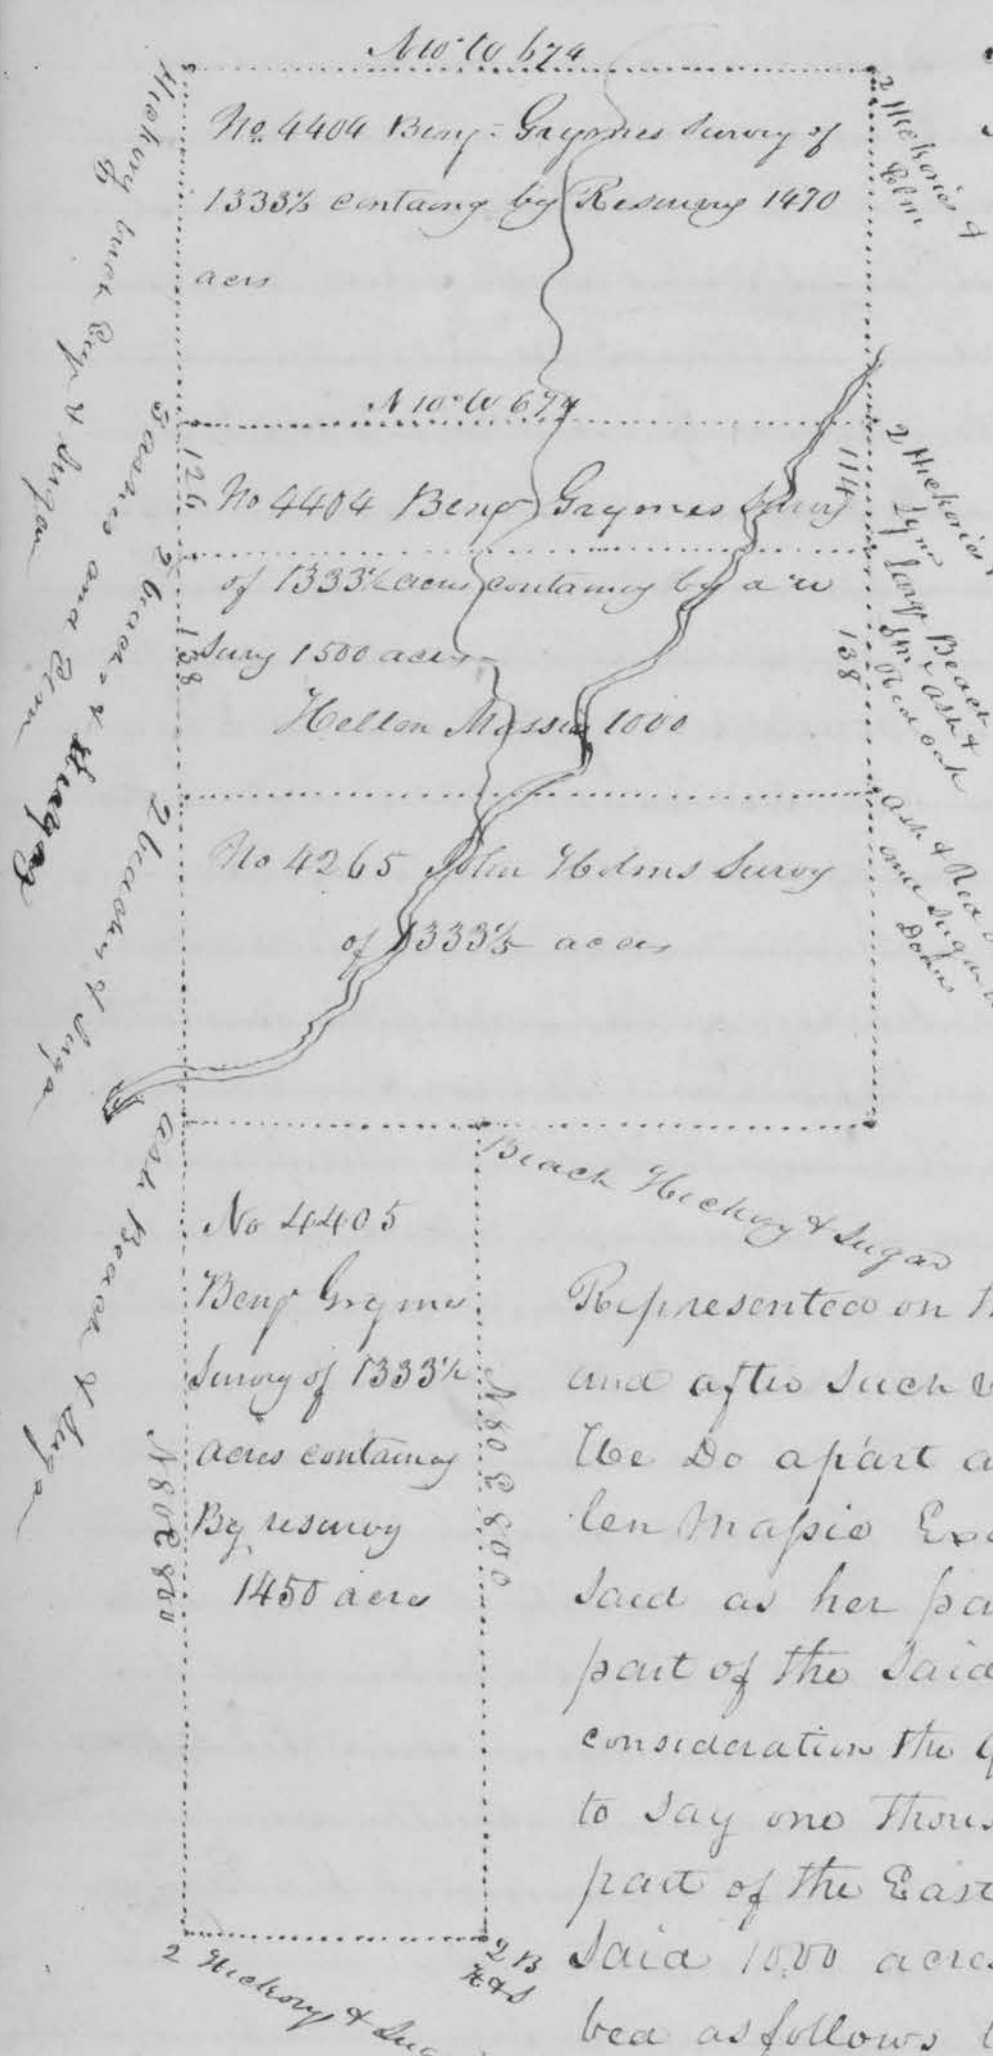 N 10° W 674
No. 4404 Benj - Graymes Survey of
1333⅓ containg by Resurvey 1470
acrs
2 Hickories &
Elm
Hickory
N 10° W 674
126
114
No 4404 Benj Graymes Survy
of 1333⅓ acres containing by a re
Survy 1500 acres
138
138
Hellen Massie 1000
2 Hickories
large Beach
Ash &
Red oak
3 ashes and Elm
2 beach & Sugar
No 4265 John Holms Survey
of 1333⅓ acres
ash & Red
and Sugar
Down
2 beachs & Suga
Beach Hickory & Sugar
ash Beach & Suga
No 4405
Benj Grymes
Survey of 1333⅓
acres containing
By resurvey
1450 acres
N 80 E 800
N 80 E 800
2 Hickory & Sug
2 B
H & S
Represented on th
and after such
We Do apart a
len Massie Exe
said as her pa
part of the Said
consideration the
to Say one Thous
part of the East
Said 1000 acres
bed as follows